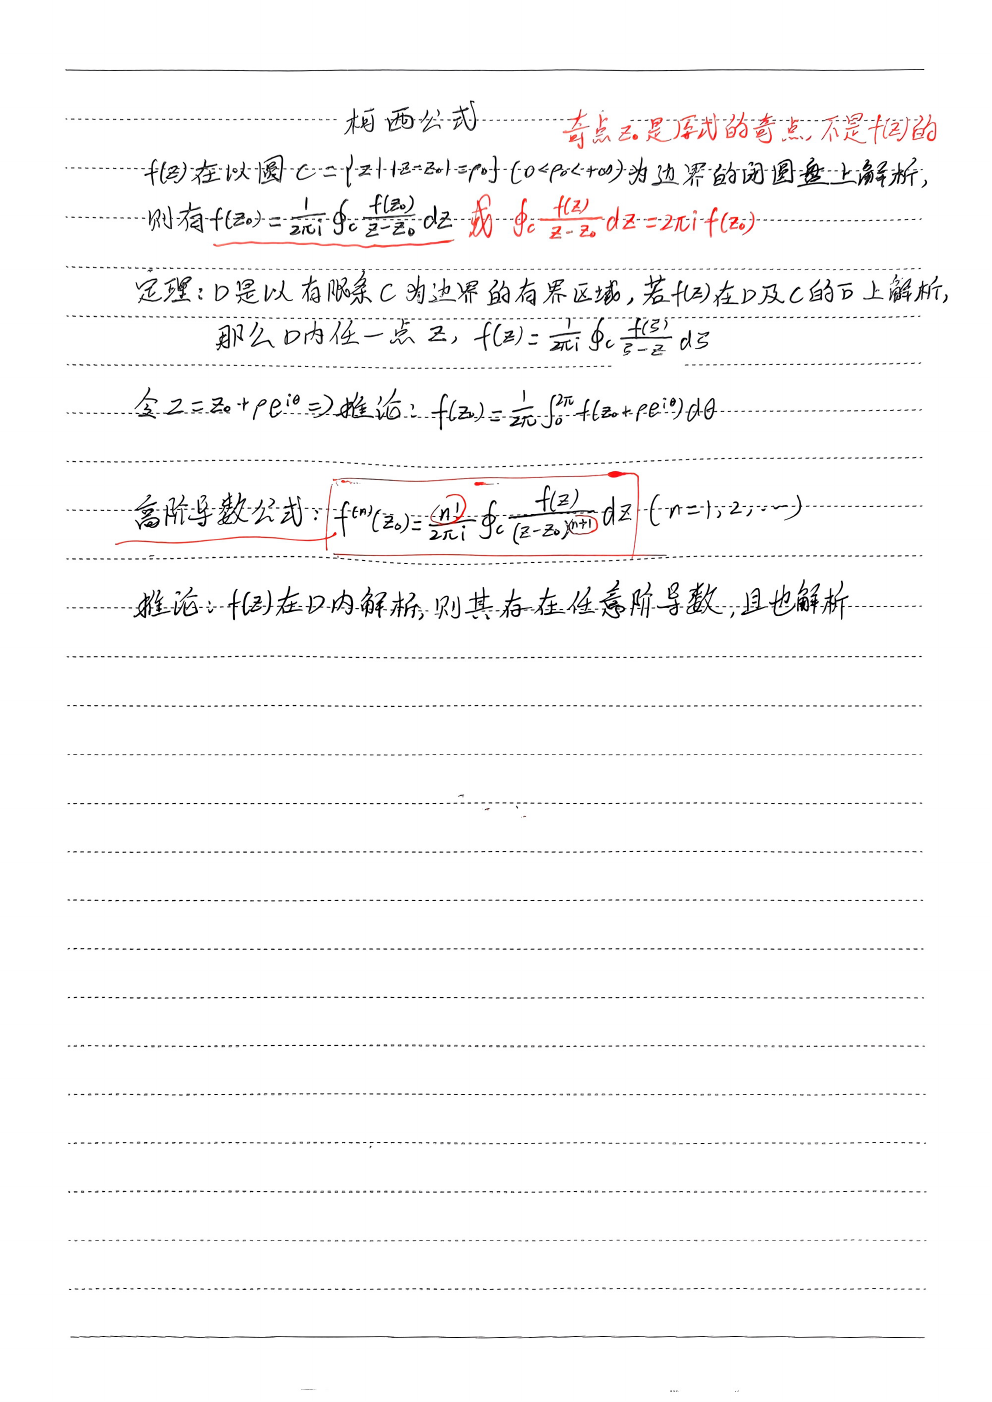 柯西公式
奇点z₀是原式的奇点,不是f(z)的
f(z)在以圆 C={z||z-z₀|=ρ₀} (0<ρ₀<+∞)为边界的闭圆盘上解析,
则有f(z₀)=\frac{1}{2πi}∮_C \frac{f(z₀)}{z-z₀}dz 或 ∮_C \frac{f(z)}{z-z₀}dz=2πi f(z₀)
定理:D是以有限条C为边界的有界区域,若f(z)在D及C的D̄上解析,
那么D内任一点z, f(z)=\frac{1}{2πi}∮_C \frac{f(ζ)}{ζ-z}dζ
令z=z₀+ρe^{iθ}⇒推论: f(z₀)=\frac{1}{2π}∫_0^{2π}f(z₀+ρe^{iθ})dθ
高阶导数公式: f^{(n)}(z₀)=\frac{n!}{2πi}∮_C \frac{f(z)}{(z-z₀)^{(n+1)}}dz (n=1,2,…)
推论:f(z)在D内解析,则其存在任意阶导数,且也解析